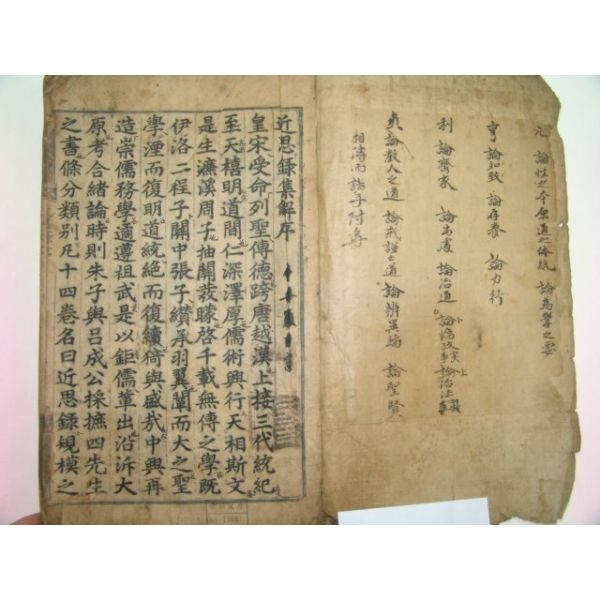 元 論性之本原道之体統 論爲學之要
亨 論知致 論存養 論力行
利 論齊家 論出處 論治道 論治法
貞 論敎人之道 論戒謹之道 論辨異端 論聖賢
相傳而諸子附焉
近思錄集解序
皇宋受命列聖傳德跨唐越漢上接三代統紀
至天禧明道間仁深澤厚儒術興行天相斯文
是生濂溪周子抽關發矇啓千載無傳之學旣
伊洛二程子關中張子纘承羽翼闡而大之聖
學湮而復明道統絕而復續猗與盛哉中興再
造崇儒務學遹遵祖武是以鉅儒輩出沿泝大
原考合緖論時則朱子與呂成公採摭四先生
之書條分類別凡十四卷名曰近思錄規模之